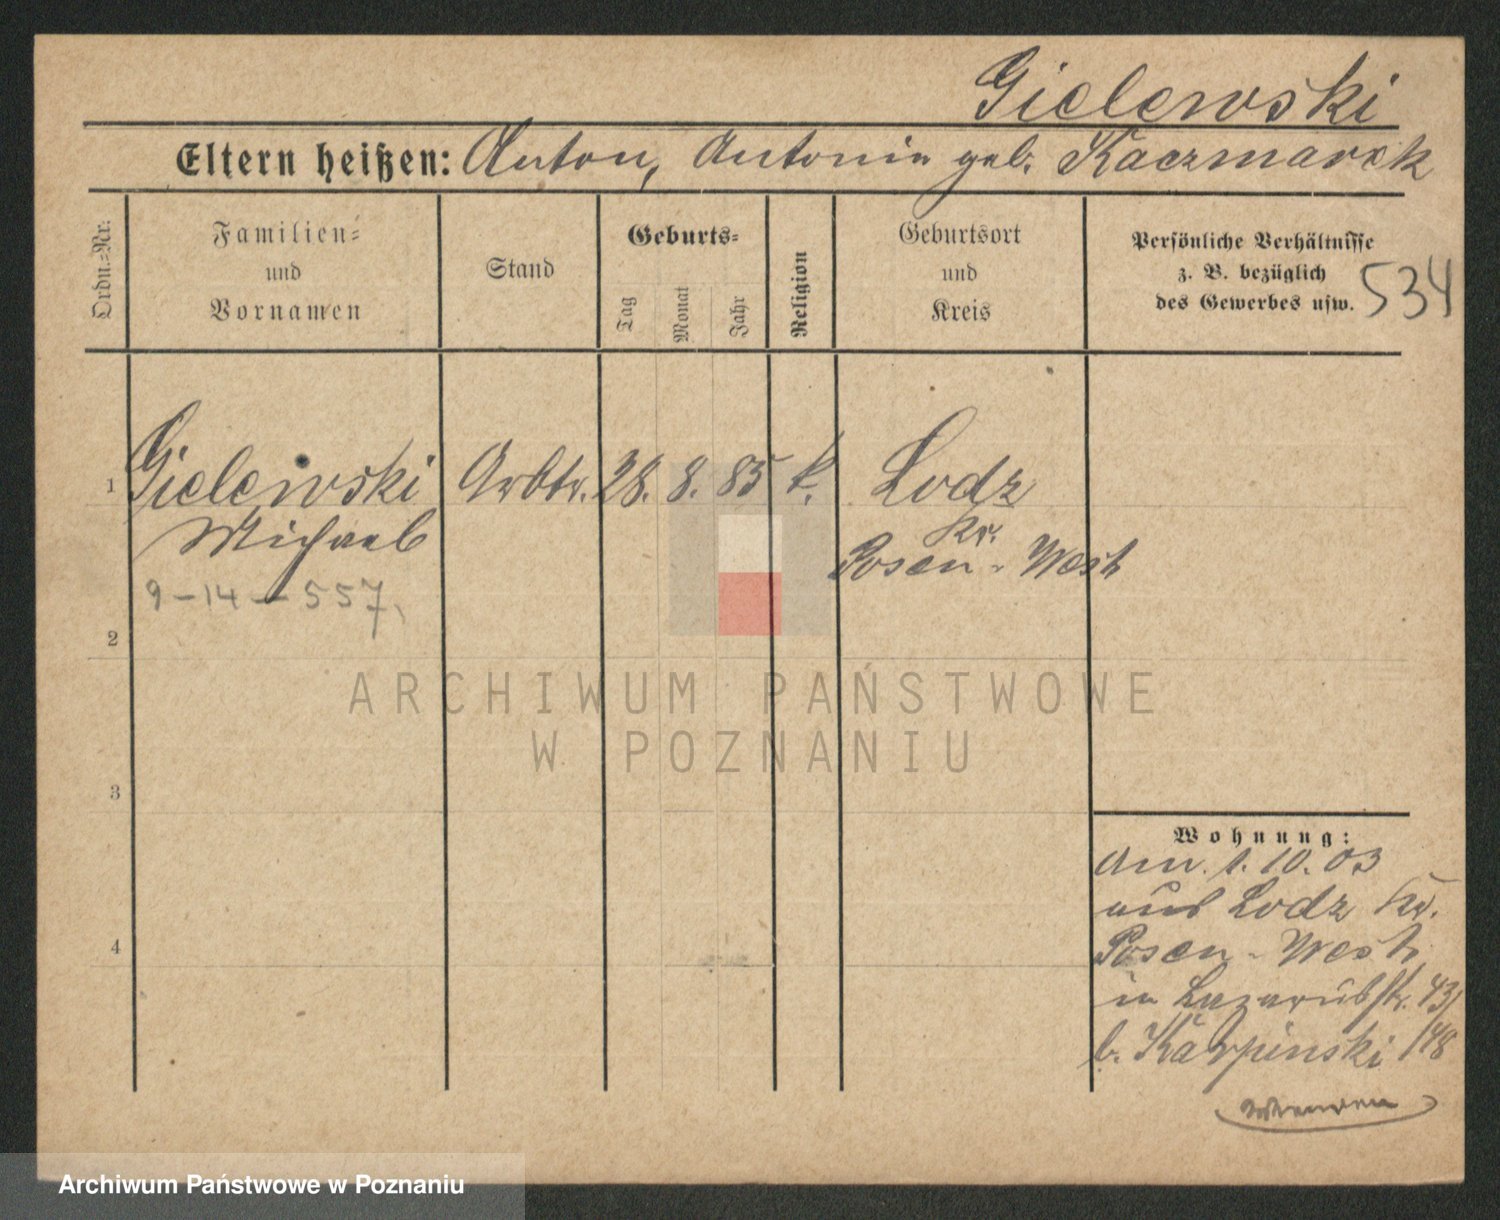 Gielewski
Eltern heißen: Anton, Antonie geb. Kaczmarek
Ordn.-Nr.
Familien- und Vornamen
Stand
Geburts-
Tag
Monat
Jahr
Religion
Geburtsort und Kreis
Persönliche Verhältnisse
z. B. bezüglich
des Gewerbes usw.
534
1 Gielewski Arbtr. 28. 8. 85 k. Lodz
Michael
Kr.
Posen-West
9-14-557.
2
ARCHIWUM PAŃSTWOWE
W POZNANIU
3
Wohnung:
Am. 1. 10. 03
aus Lodz Kr.
4
Posen-West
in Lazarusstr. 43/
b. Karpinski /48
Archiwum Państwowe w Poznaniu